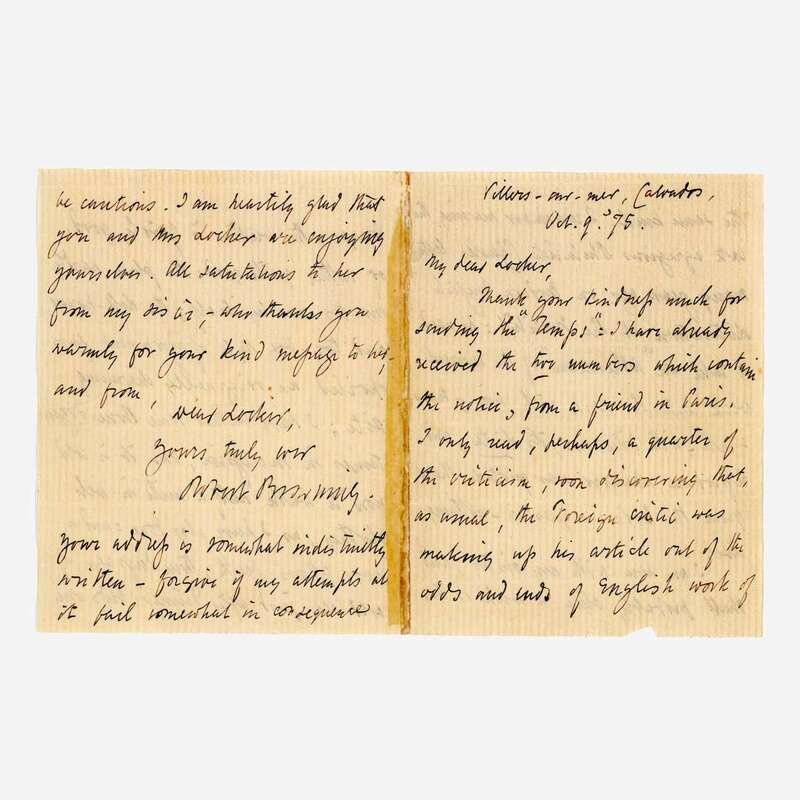 Villers-sur-mer, Calvados,
Oct. 9. '75.
My dear Locker,
Thank your kindness much for
sending the "Temps": I have already
received the two numbers which contain
the notice, from a friend in Paris.
I only read, perhaps, a quarter of
the criticism, soon discovering that,
as usual, the Foreign critic was
making up his article out of the
odds and ends of English work of
be cautious. I am heartily glad that
you and Mrs Locker are enjoying
yourselves. All salutations to her
from my sister, - who thanks you
warmly for your kind message to her,
and from,
Dear Locker,
Yours truly ever
Robert Browning.
Your address is somewhat indistinctly
written - forgive if my attempts at
it fail somewhat in consequence